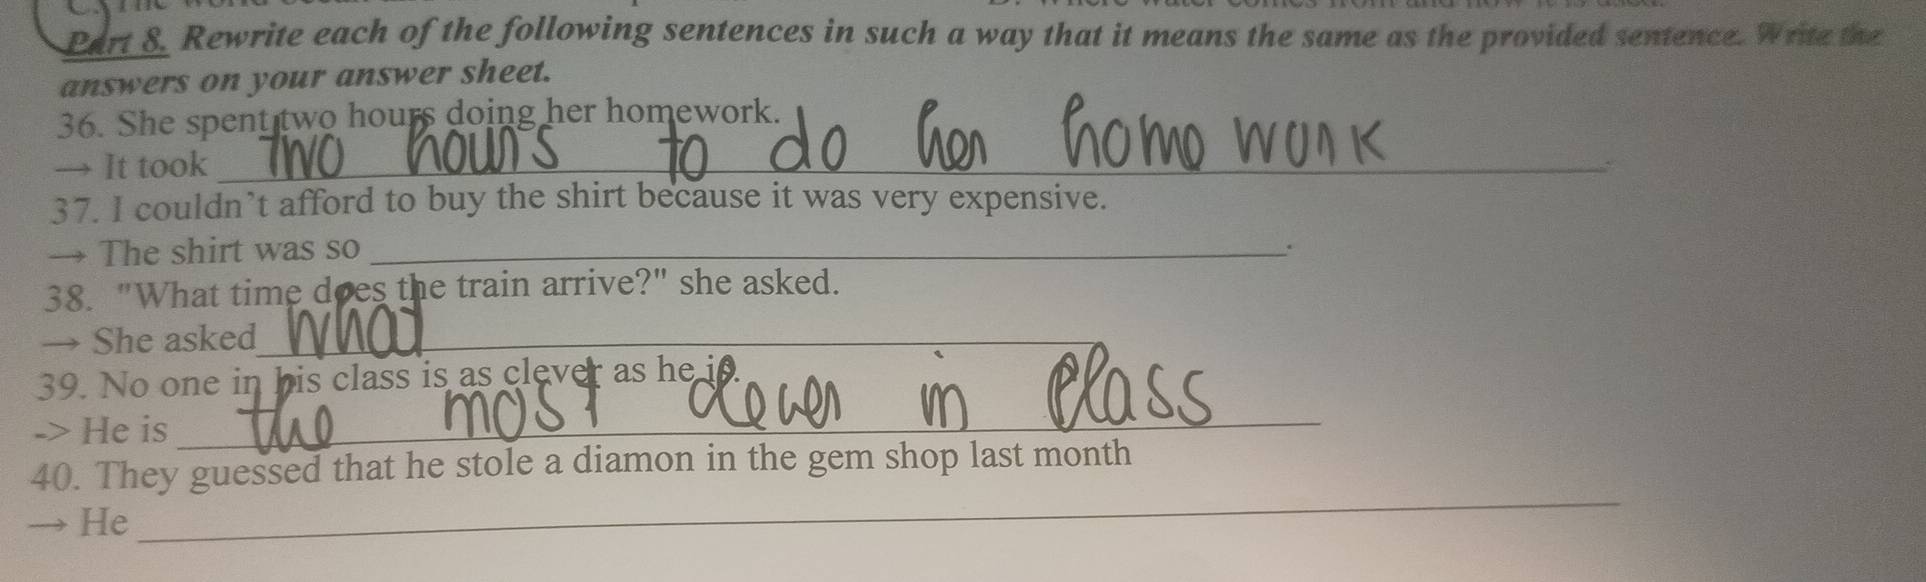 Part 8. Rewrite each of the following sentences in such a way that it means the same as the provided sentence. Write the
answers on your answer sheet.
36. She spent two hours doing her homework.
→ It took two hours to do her homo work.
37. I couldn't afford to buy the shirt because it was very expensive.
→ The shirt was so ____________________.
38. "What time does the train arrive?" she asked.
→ She asked what
39. No one in his class is as clever as he is.
-> He is the most clever in class
40. They guessed that he stole a diamon in the gem shop last month
→ He ____________________